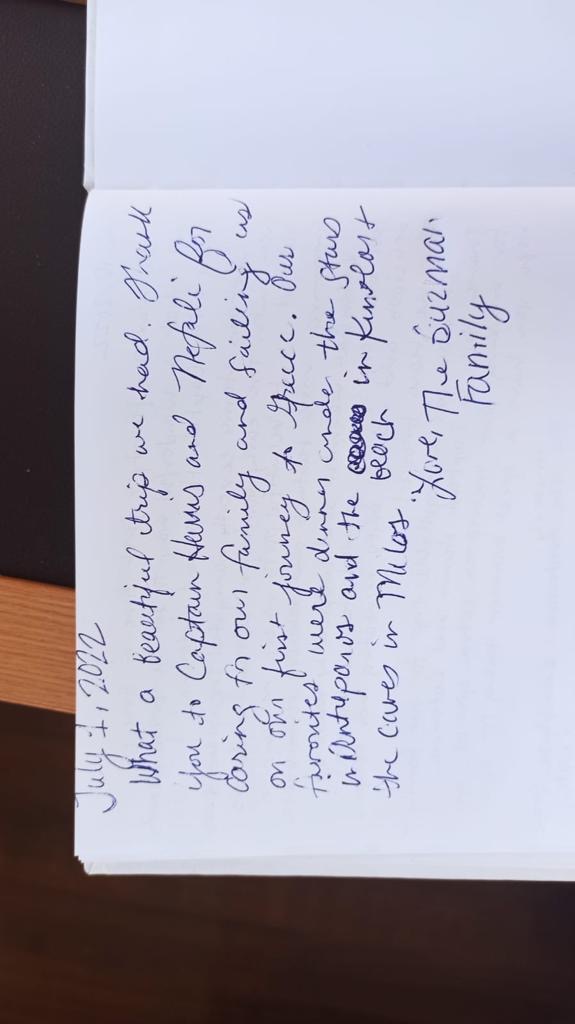 July 1, 2022
What a beautiful trip we had. Thank
you to Captain Harris and Nefeli for
caring for our family and sailing us
on our first journey to Greece. Our
favorites were dinner under the stars
in Antiparos and the beach in
the caves in Milos
Love, The
Family